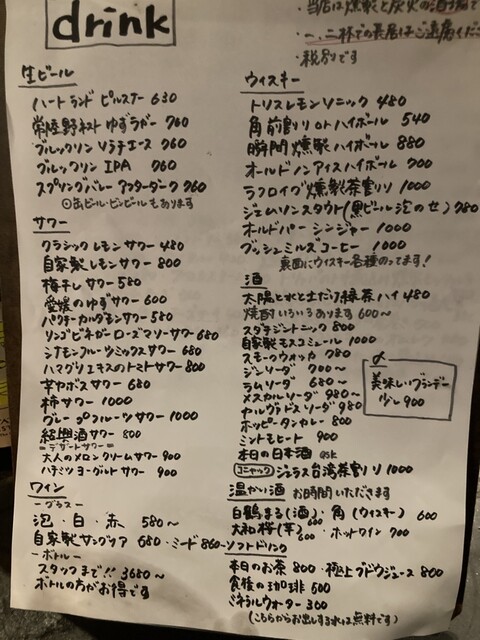 drink
・当店は燻製と炭火の酒場で
・一、二杯での長居はご遠慮くださ
・税別です
生ビール
ハートランド ピルスナー 630
常陸野ネスト ゆずラガー 760
ブルックリン Vラテエース 760
ブルックリン IPA 760
スプリングバレー アフターダーク 760
◎缶ビール・ビンビールもあります
サワー
クラシックレモンサワー 480
自家製レモンサワー 800
梅干しサワー 580
愛媛のゆずサワー 600
パクチーカルダモンサワー 580
リンゴビネガーローズマリーサワー 680
シナモンフルーツミックスサワー 680
ハマグリエキスのトマトサワー 800
芋ヤボスサワー 680
柿サワー 1000
グレープフルーツサワー 1000
紹興酒サワー 800
=デザートサワー=
大人のメロンクリームサワー 900
ハチミツヨーグルトサワー 900
ワイン
−グラス−
泡・白・赤 580〜
自家製サングリア 680・ミード 860〜
−ボトル−
スタッフまで!! 3680〜
ボトルの方がお得です
ウィスキー
トリスレモンソニック 480
角前割りロトハイボール 540
瞬間燻製ハイボール 880
オールドノンアイスハイボール 700
ラフロイグ燻製茶割り 1000
ジェムソンスタウト(黒ビール泡のせ) 780
オールドパーシンジャー 1000
ブッシュミルズコーヒー 1000
裏面にウィスキー各種のってます!
酒
太陽と水と土だけ緑茶ハイ 480
焼酎いろいろあります 600〜
スタヂジントニック 800
自家製モスコミュール 1000
スモークウォッカ 780
ジンソーダ 700〜
ラムソーダ 680〜
メスカルソーダ 980〜
カルヴァドスソーダ 980
ホッピータンカレー 800
ミントモヒート 900
本日の日本酒 ask
コニャック ジェラス台湾茶割り 1000
〆
美味しいブランデー
少し 900
温かい酒 お時間いただきます
白鶴まる(酒)600・角(ウィスキー) 600
大和桜(芋)600・ホットワイン 700
ソフトドリンク
本日のお茶 800・極上ブドウジュース 800
食後の珈琲 500
ミネラルウォーター 300
(こちらからお出しする水は無料です)